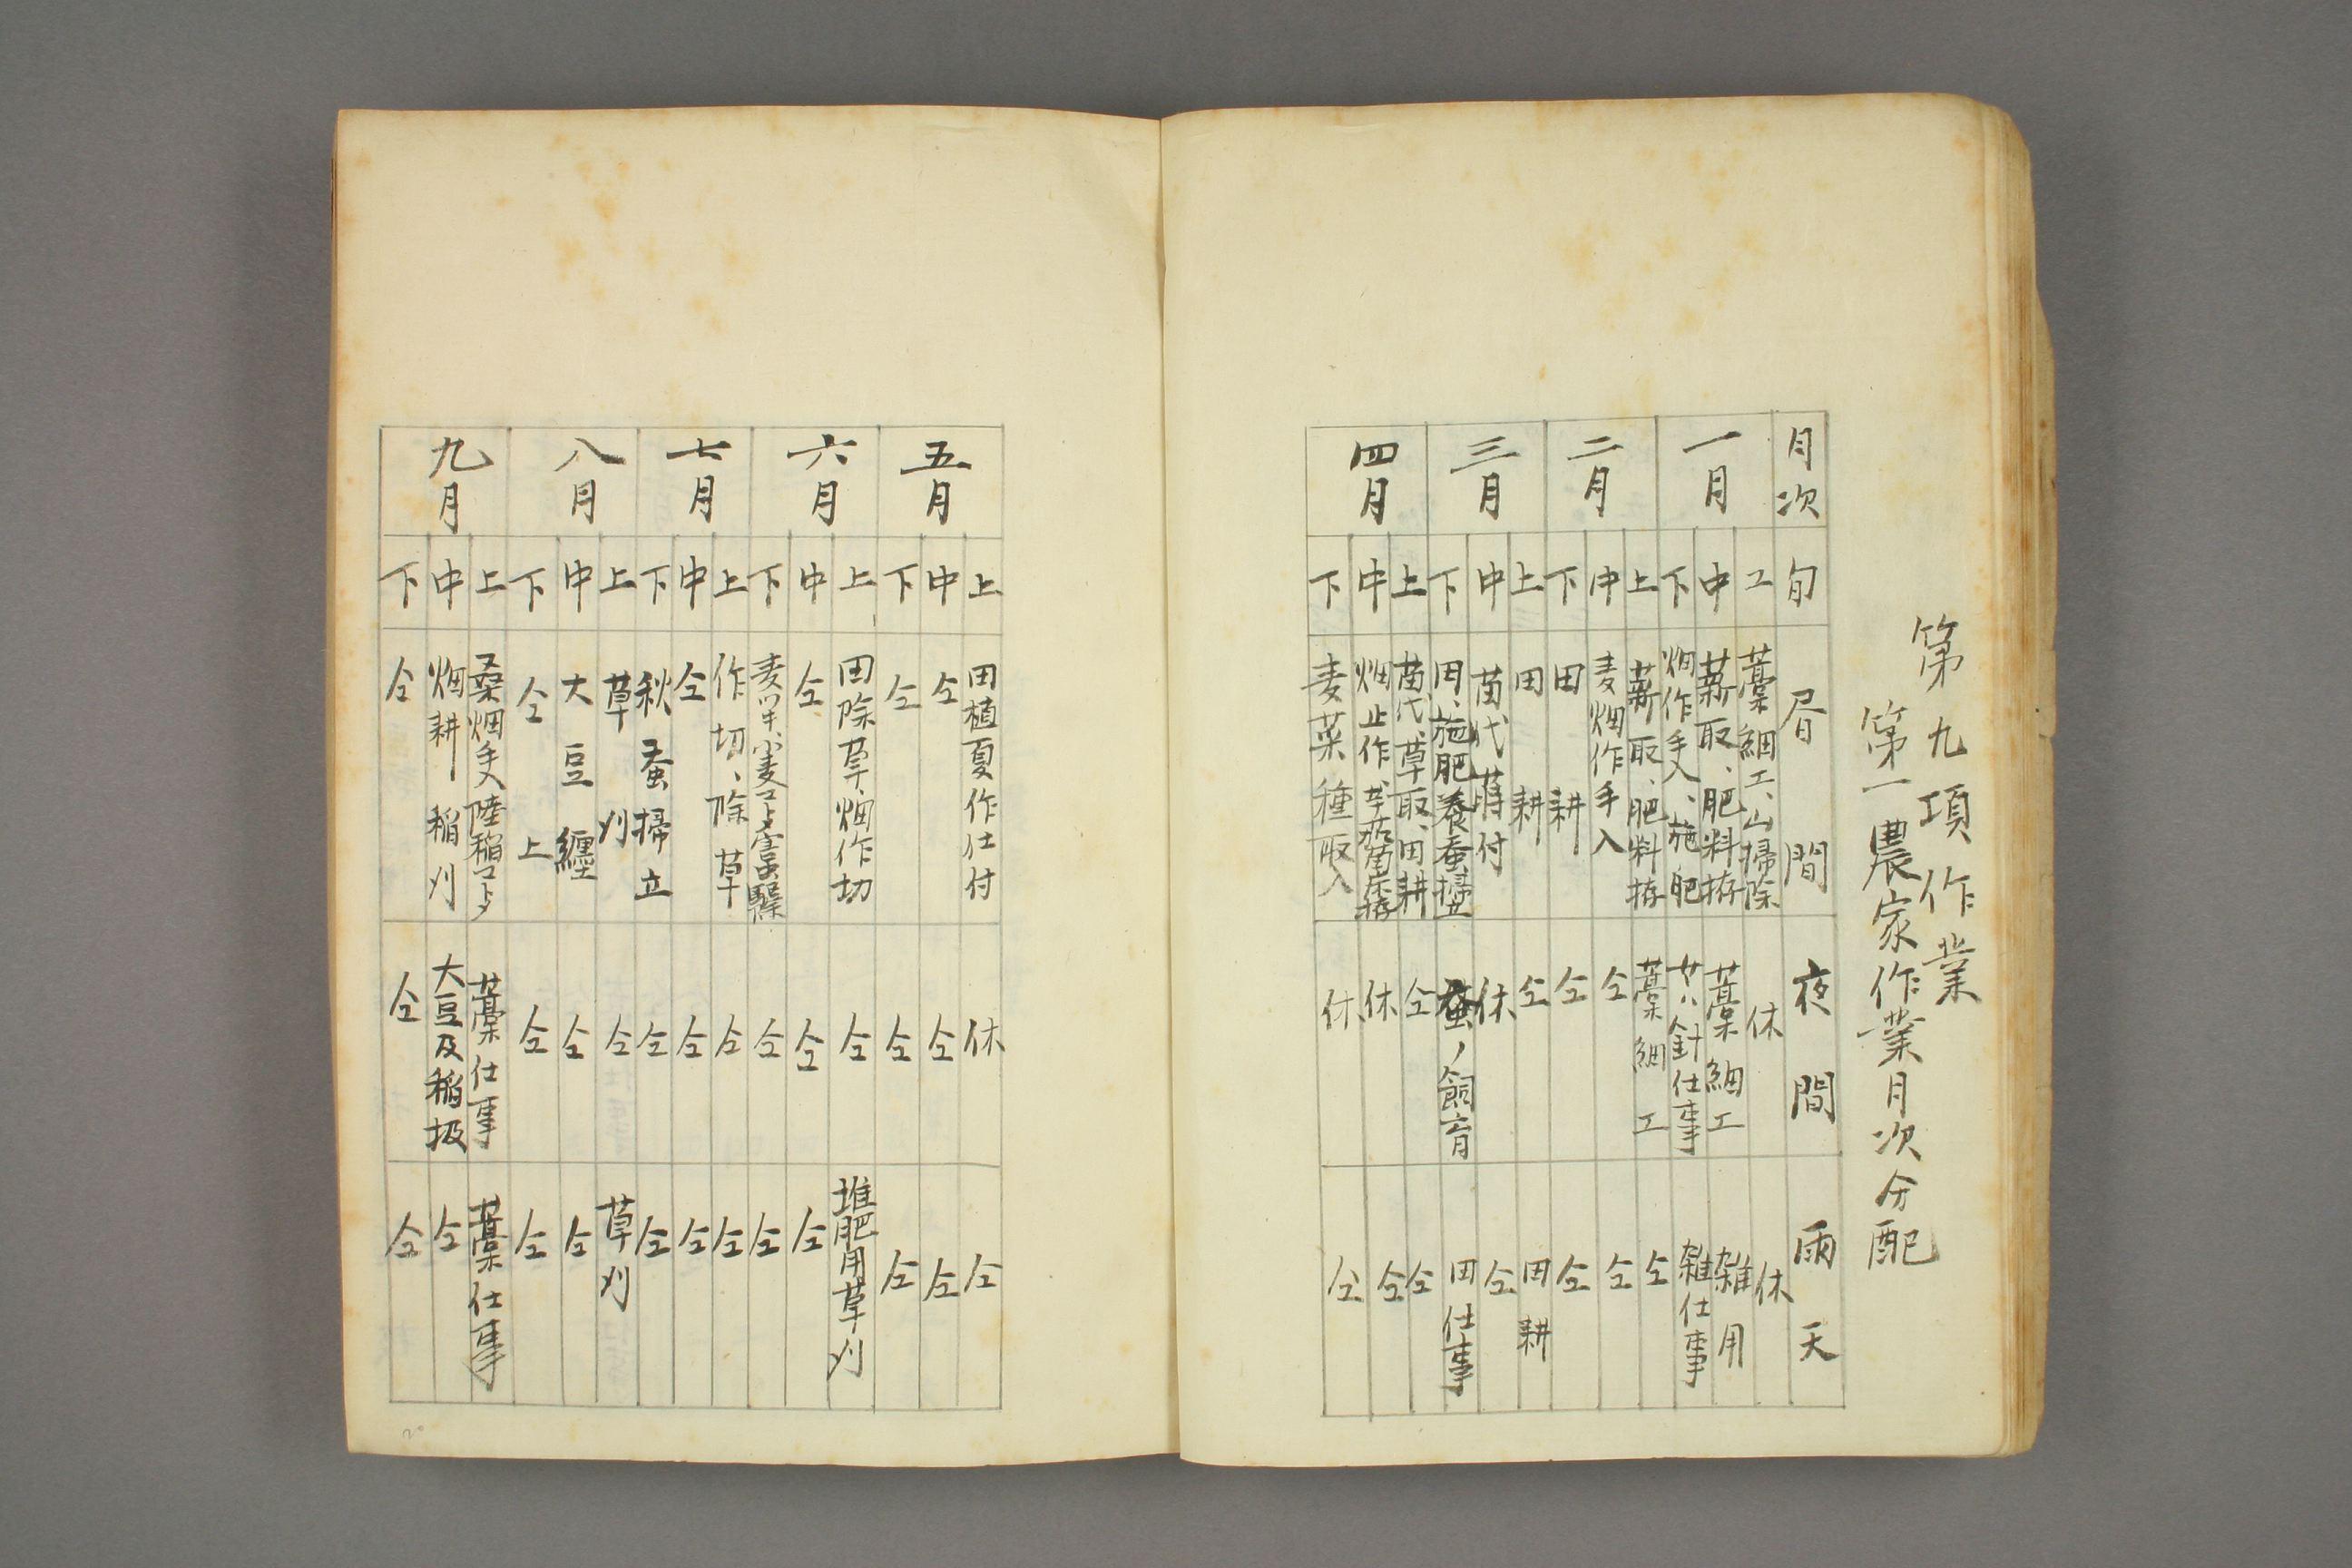 第九項 作業
第一 農家作業月次分配
月次 旬 昼間 夜間 雨天
一月 上 藁細工、山掃除 休 休
中 薪取、肥料拵 藁細工 雑用
下 畑作手入、施肥 女ハ針仕事 雑仕事
二月 上 薪取、肥料拵 藁細工 仝
中 麦畑作手入 仝 仝
下 田耕 仝 仝
三月 上 田耕 仝 田耕
中 苗代蒔付 休 仝
下 田、施肥養蚕掃立 蚕ノ飼育 田仕事
四月 上 苗代、草取、田耕 仝 仝
中 畑止作、芋茄苗床拵 休 仝
下 麦菜種取入 休 仝
五月 上 田植夏作仕付 休 仝
中 仝 仝 仝
下 仝 仝 仝
六月 上 田除草、畑作切 仝 堆肥用草刈
中 仝 仝 仝
下 麦 小麦 仝 仝
七月 上 作切、除草 仝 仝
中 仝 仝 仝
下 秋蚕掃立 仝 仝
八月 上 草刈 仝 草刈
中 大豆纏 仝 仝
下 仝上 仝 仝
九月 上 桑畑手入陸稲コトメ 藁仕事 藁仕事
中 畑耕 稲刈 大豆及稲扱 仝
下 仝 仝 仝